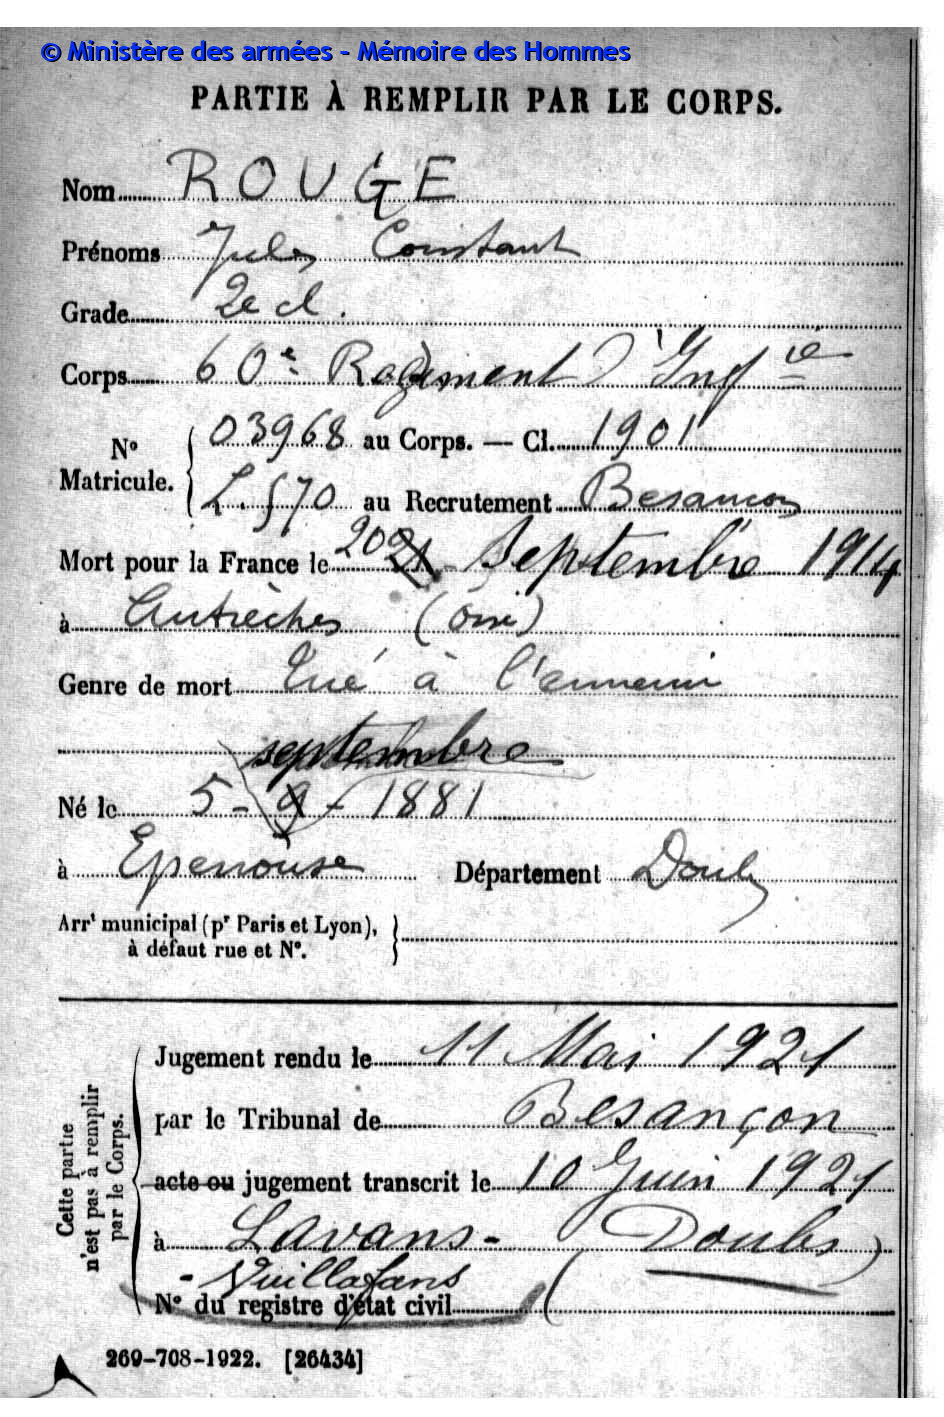 © Ministère des armées - Mémoire des Hommes
PARTIE À REMPLIR PAR LE CORPS.
Nom ROUGE
Prénoms Jules Constant
Grade 2e cl.
Corps 60e Régiment d'Infie
No Matricule. 03968 au Corps. — Cl. 1901
L. 570 au Recrutement Besançon
Mort pour la France le 20 Septembre 1914
à Autrèches (Oise)
Genre de mort Tué à l'ennemi
septembre
Né le 5 - 9 - 1881
à Epenouse Département Doubs
Arrt municipal (pr Paris et Lyon),
à défaut rue et No.
Cette partie
n'est pas à remplir
par le Corps.
Jugement rendu le 11 Mai 1921
par le Tribunal de Besançon
acte ou jugement transcrit le 10 Juin 1921
à Lavans- (Doubs)
-Vuillafans
No du registre d'état civil
269-708-1922. [26434]